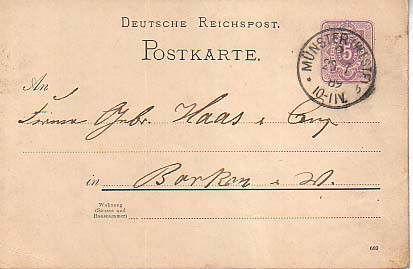 DEUTSCHE REICHSPOST.
POSTKARTE.
5
MÜNSTER (WESTF)
89
10-11V.
An
Firma Gebr. Haas & Comp
in Borken i. W.
Wohnung
(Strasse und
Hausnummer)
689